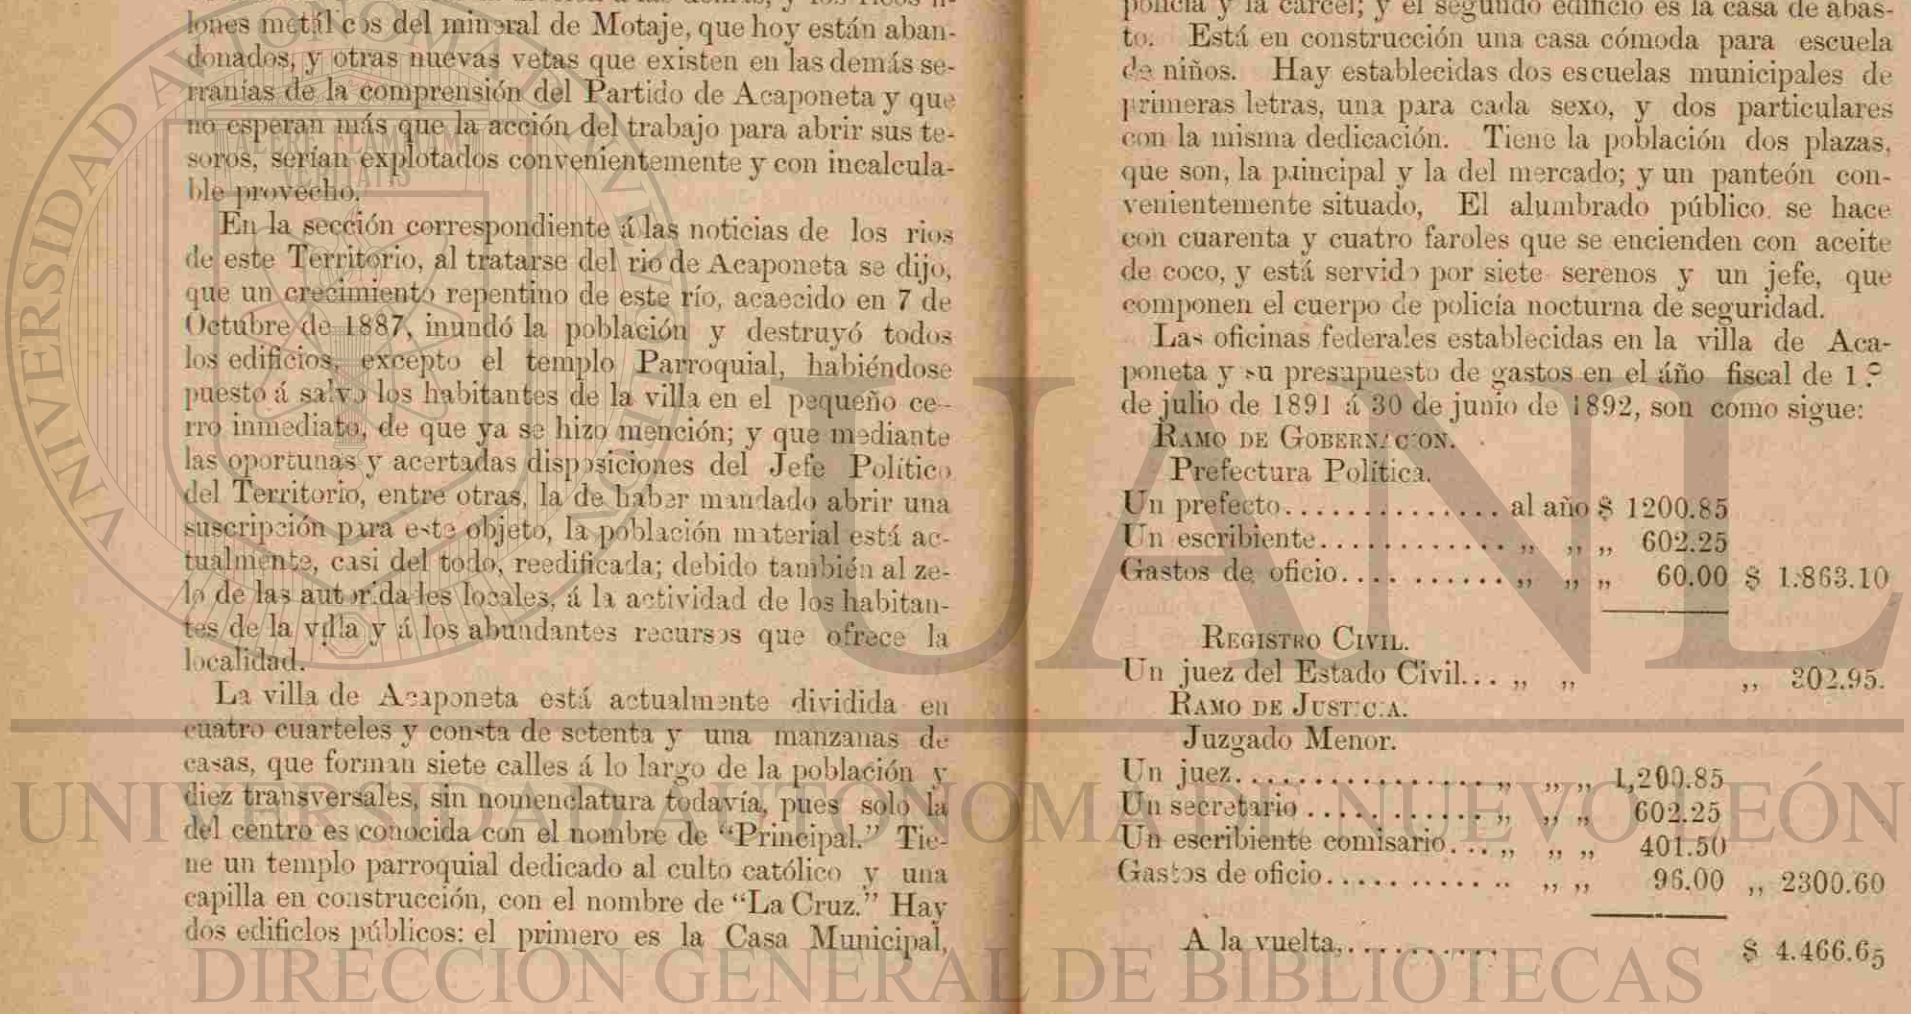 lones metálicos del mineral de Motaje, que hoy están aban-
donados, y otras nuevas vetas que existen en las demás se-
rranías de la comprensión del Partido de Acaponeta y que
no esperan más que la acción del trabajo para abrir sus te-
soros, serían explotados convenientemente y con incalcula-
ble provecho.
En la sección correspondiente á las noticias de los rios
de este Territorio, al tratarse del rio de Acaponeta se dijo,
que un crecimiento repentino de este río, acaecido en 7 de
Octubre de 1887, inundó la población y destruyó todos
los edificios, excepto el templo Parroquial, habiéndose
puesto á salvo los habitantes de la villa en el pequeño ce-
rro inmediato, de que ya se hizo mención; y que mediante
las oportunas y acertadas disposiciones del Jefe Político
del Territorio, entre otras, la de haber mandado abrir una
suscripción para este objeto, la población material está ac-
tualmente, casi del todo, reedificada; debido también al ze-
lo de las autoridades locales, á la actividad de los habitan-
tes de la villa y á los abundantes recursos que ofrece la
localidad.
La villa de Acaponeta está actualmente dividida en
cuatro cuarteles y consta de setenta y una manzanas de
casas, que forman siete calles á lo largo de la población y
diez transversales, sin nomenclatura todavía, pues solo la
del centro es conocida con el nombre de “Principal.” Tie-
ne un templo parroquial dedicado al culto católico y una
capilla en construcción, con el nombre de “La Cruz.” Hay
dos edificios públicos: el primero es la Casa Municipal,
policía y la cárcel; y el segundo edificio es la casa de abas-
to. Está en construcción una casa cómoda para escuela
de niños. Hay establecidas dos escuelas municipales de
primeras letras, una para cada sexo, y dos particulares
con la misma dedicación. Tiene la población dos plazas,
que son, la principal y la del mercado; y un panteón con-
venientemente situado, El alumbrado público se hace
con cuarenta y cuatro faroles que se encienden con aceite
de coco, y está servido por siete serenos y un jefe, que
componen el cuerpo de policía nocturna de seguridad.
Las oficinas federales establecidas en la villa de Aca-
poneta y su presupuesto de gastos en el áño fiscal de 1.º
de julio de 1891 á 30 de junio de 1892, son como sigue:
RAMO DE GOBERNACION.
Prefectura Política.
Un prefecto.............. al año $ 1200.85
Un escribiente............ ,, ,, ,, 602.25
Gastos de oficio............ ,, ,, ,, 60.00 $ 1.863.10
REGISTRO CIVIL.
Un juez del Estado Civil... ,, ,, ,, 302.95.
RAMO DE JUSTICIA.
Juzgado Menor.
Un juez................. ,, ,, ,, 1,200.85
Un secretario............ ,, ,, ,, 602.25
Un escribiente comisario... ,, ,, ,, 401.50
Gastos de oficio............ ,, ,, 96.00 ,, 2300.60
A la vuelta,.......... $ 4.466.65
UANL
UNIVERSIDAD AUTÓNOMA DE NUEVO LEÓN
DIRECCIÓN GENERAL DE BIBLIOTECAS